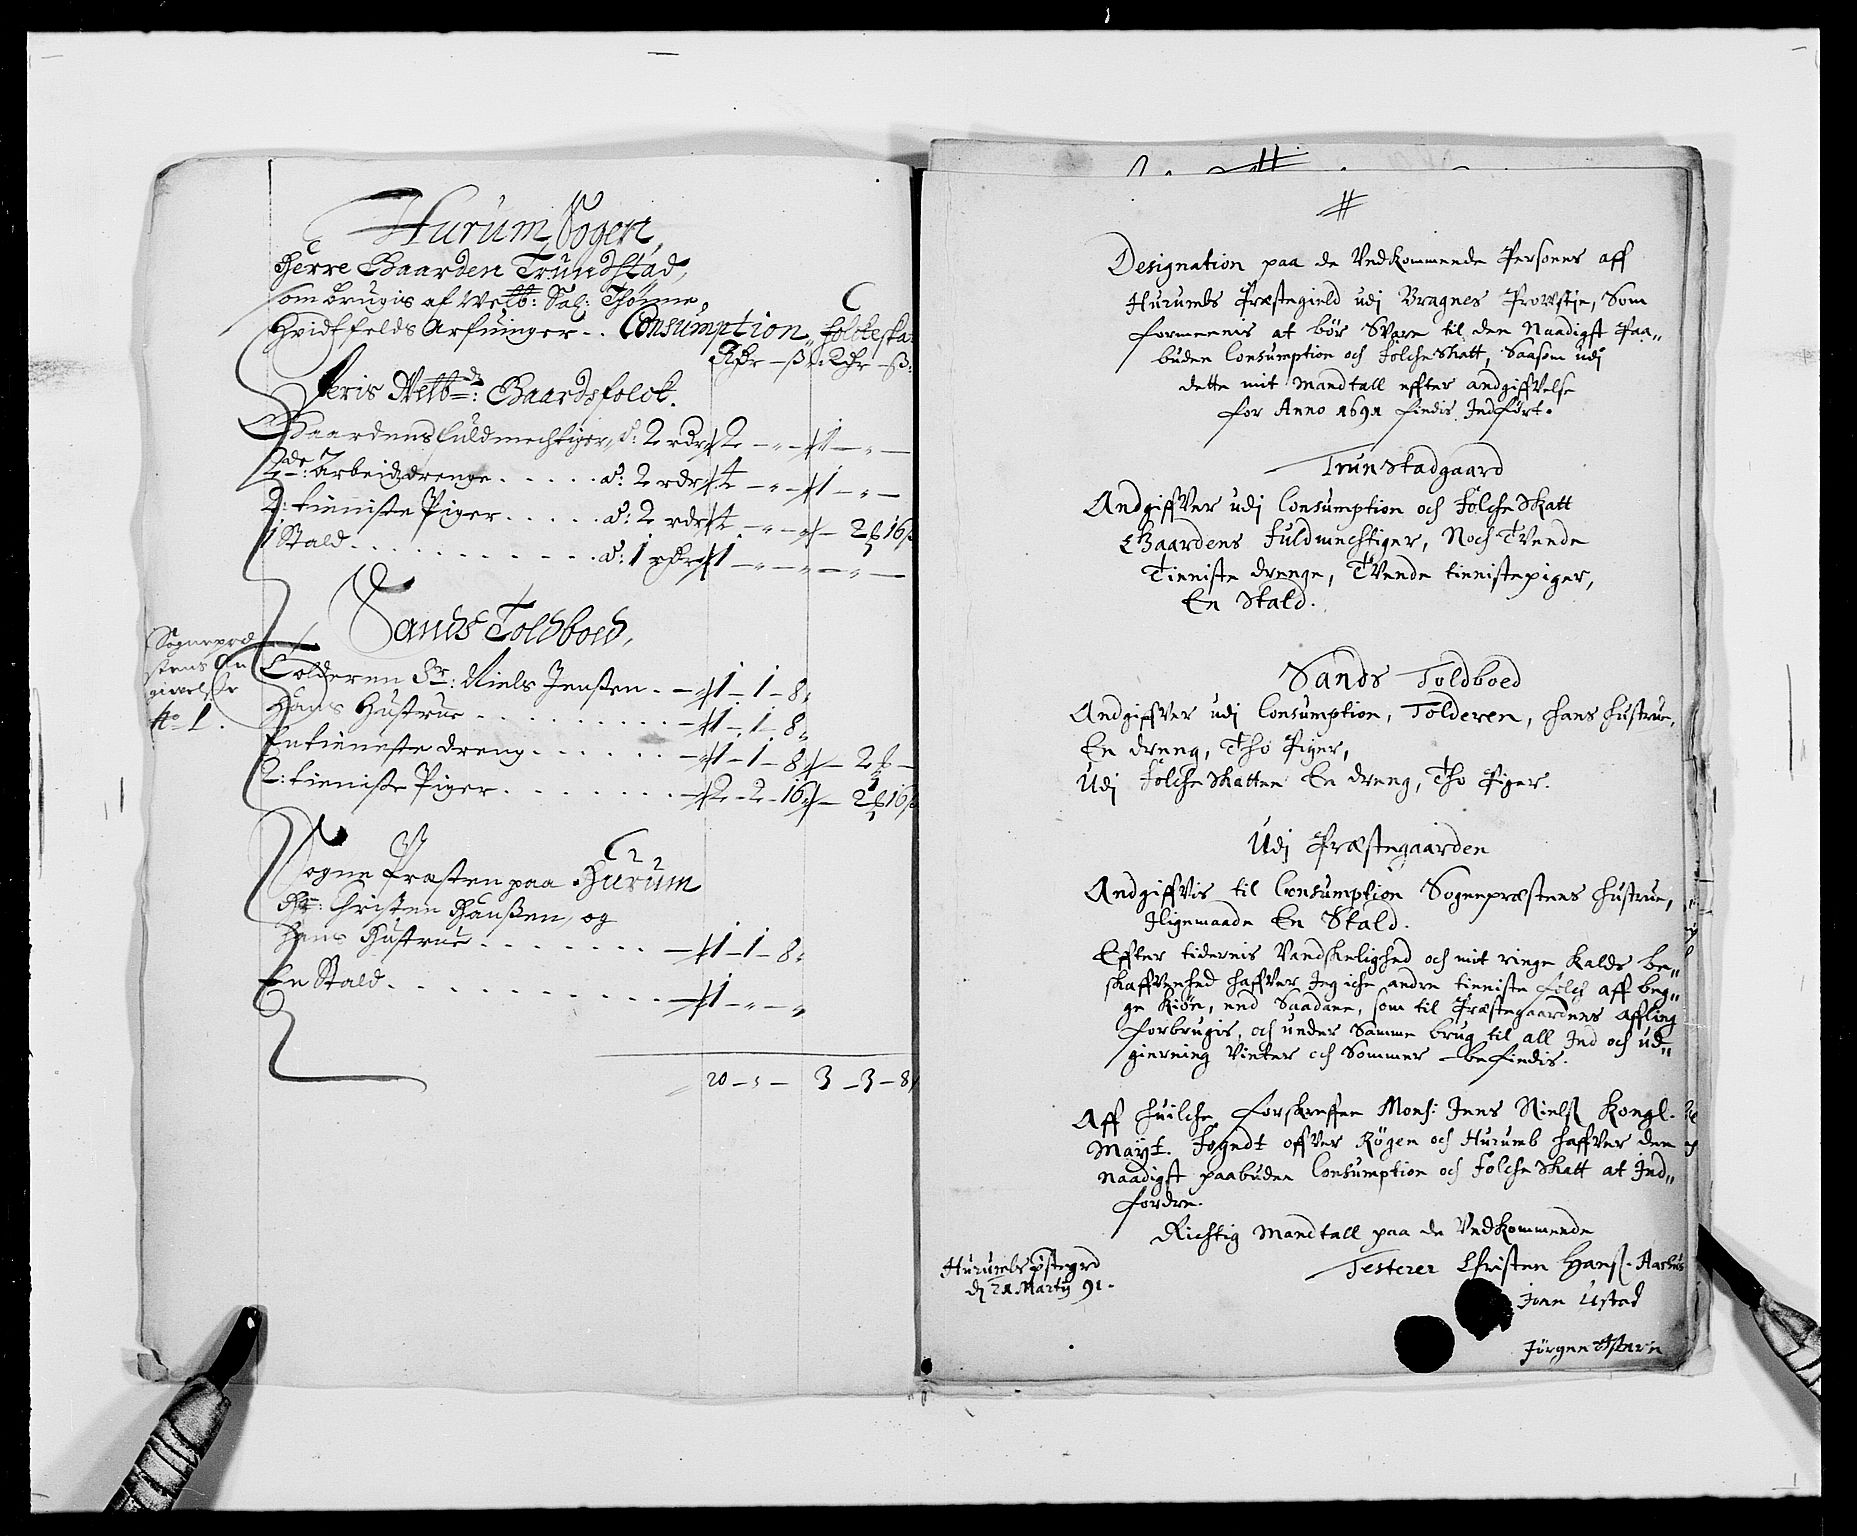 Hurum Sogen,
Herre Gaarden Trundstad,
som brugis af Welb: Sal: Thønne
Hvidtfelds Arfuinger .. Consumption, folckeska:
Rdr – ß – Rdr – ß:
Deris Welb:de: Gaardsfolck.
Gaardens fuldmechtiger, á: 2 rdr 2 – „ – 1 – „ –
2de: Arbeidzdrenge . . . . . á: 2 rdr 4 – „ – 1 – „ –
2: tieniste Piger . . . . . á: 2 rdr 4 – „ – – 2 16
1 Stald . . . . . . . . . . á: 1 rdr 1 – „ – „ – „ –
Sands Toldboed,
Sognepræ
stens An
givelse
No 1.
Tolderen Sr: Niels Jensen . – 1 – 1 – 8
Hans Hustrue . . . . . . . – 1 – 1 – 8
En tieneste dreng . . . . . – 1 – 1 – 8 – 2 –
2: tieniste Piger . . . . . . . – 2 – 2 – 16 – 2 16
Sogne Præsten paa Hurum
Hr: Christen Hanßen, og
Hans Hustrue . . . . . . . – 1 – 1 – 8
En Stald . . . . . . . . . . – 1 – „ – „
20 – „ – 3 – 3 – 8
#
Designation paa de Vedkommende Persones aff
Hurumbs Præstegield udj Bragnes Prowstje, Som
formeenis at bør Svare til den Naadigst Paa„
buden Consumption och Folche Skatt, Saasom udj
dette mit Mandtall effter andgiffvelse
for Anno 1691 findis Indført.
Trunstadgaard
Andgiffver udj Consumption och Folche Skatt
Gaardens Fuldmechtiger, Noch Tvende
Tieniste drenge, Tvende tienistepiger,
En Stald.
Sands Toldboed
Andgiffver udj Consumption, Tolderen, hans hustrue,
En dreng, Tho Piger,
Udj Folche Skatten En dreng, Tho Piger.
Udj Præstegaarden
Andgiffvis til Consumption Sognepræstens hustrue,
Iligemaade En Stald.
Effter tidernis Vandskelighed och mit ringe Kalds be„
skaffvenhed haffver Jeg iche andre tieniste folch aff beg„
ge Kiøn, end Saadane, som til Præstegaardens Affling
forbrugis, och under Samme brug til all Ind och ud„
gierning Vinter och Sommer befindis.
Aff huilche forskreffne Mons: Jens Nielß Kongl.
Mayt. Fogedt offver Røgen och Hurumb haffver den
Naadigst paabuden Consumption och Folche Skatt at Ind„
fordre.
Richtig Mandtall paa de Vedkommende
Testerer Christen Hanß. Aarhus
Hurumbs pstegrd
dj 21 Martij 91.
Jonn Ustad
Jørgen